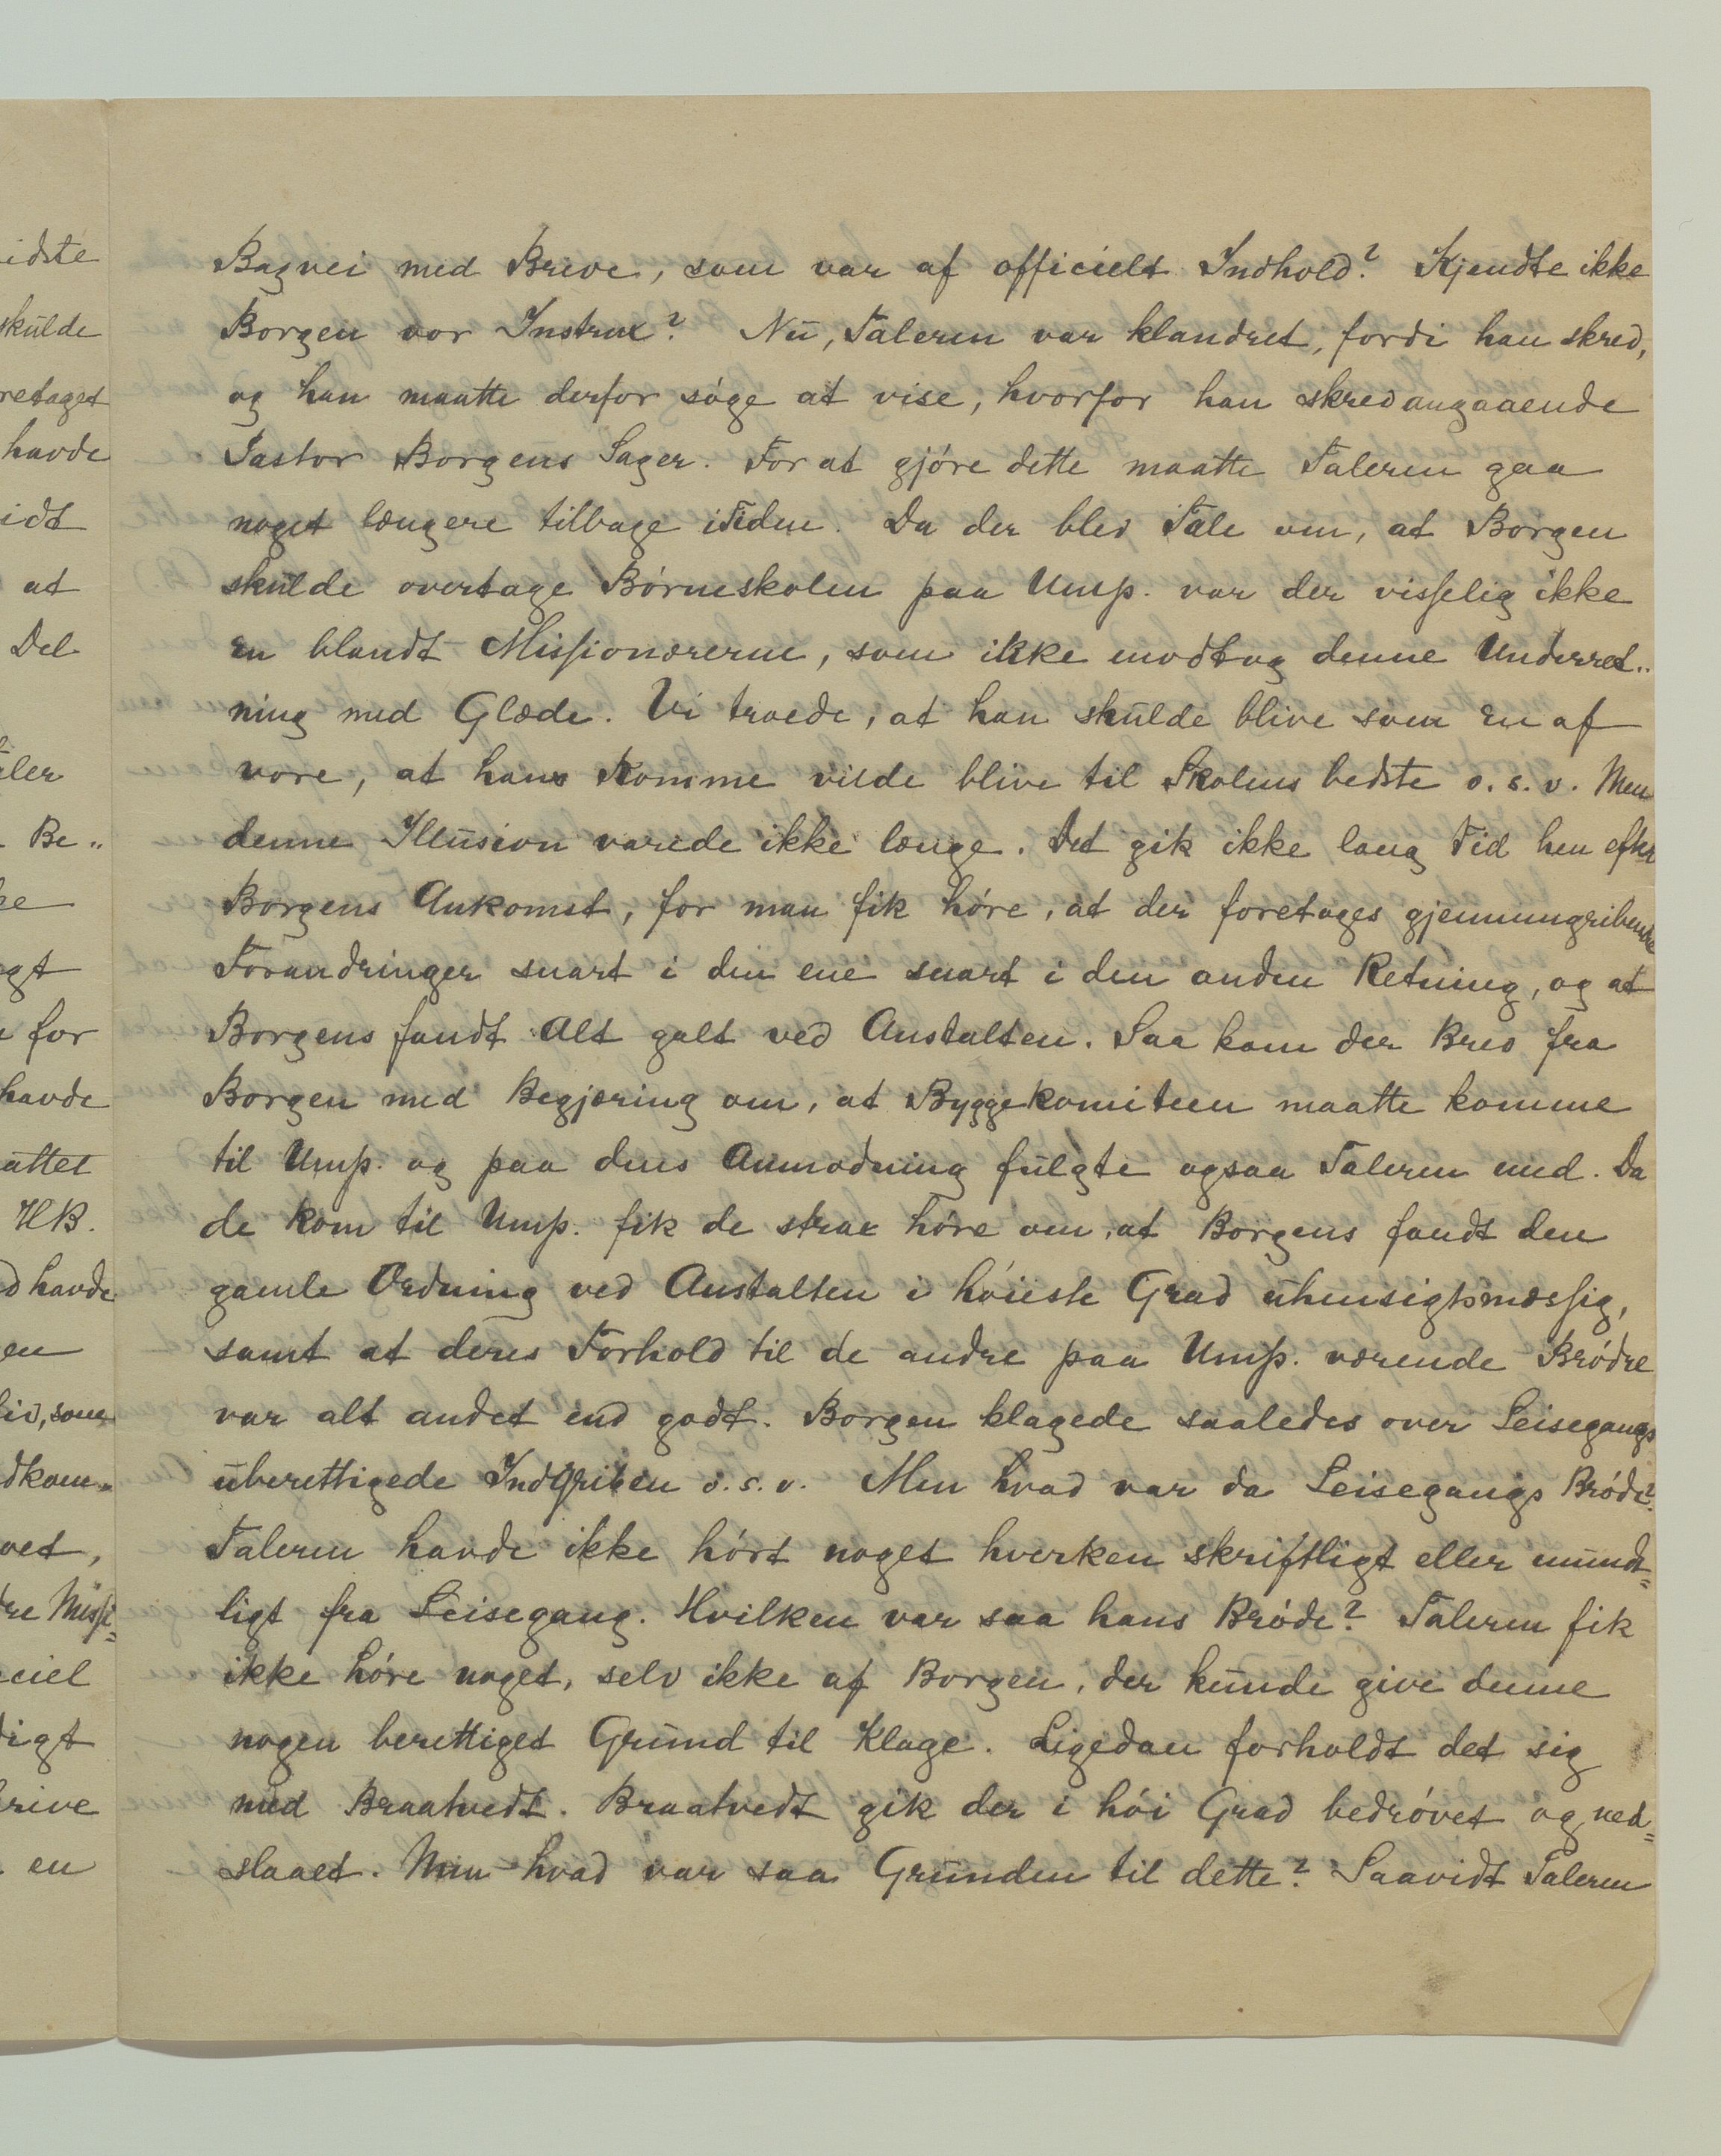 Bagvei med Breve, som var af officielt Indhold? Kjendte ikke
Borgen vor Instrux? Nu, Taleren var klandret, fordi han skrev,
og han maatte derfor søge at vise, hvorfor han skrev angaaende
Pastor Borgens Sager. For at gjøre dette maatte Taleren gaa
noget længere tilbage i Tiden. Da der blev Tale om, at Borgen
skulde overtage Børneskolen paa Ump. var der visselig ikke
en blandt Missionærerne, som ikke modtog denne Underret..
ning med Glæde. Vi troede, at han skulde blive som en af
vore, at hans Komme vilde blive til Skolens bedste o. s. v. Men
denne Illusion varede ikke længe. Det gik ikke lang Tid hen efter
Borgens Ankomst, før man fik høre, at der foretages gjennemgribende
Forandringer snart i den ene snart i den anden Retning, og at
Borgens fandt Alt galt ved Anstalten. Saa kom der Brev fra
Borgen med Begjæring om, at Byggekomiteen maatte komme
til Ump. og paa dens Anmodning fulgte ogsaa Taleren med. Da
de kom til Ump. fik de strax høre om, at Borgens fandt den
gamle Ordning ved Anstalten i høieste Grad uhensigtsmæssig,
samt at deres Forhold til de andre paa Ump. værende Brødre
var alt andet end godt. Borgen klagede saaledes over Leisegangs
uberettigede Indgriben o. s. v. Men hvad var da Leisegangs Brøde?
Taleren havde ikke hørt noget hverken skriftligt eller mundt=
ligt fra Leisegang. Hvilken var saa hans Brøde? Taleren fik
ikke høre noget, selv ikke af Borgen, der kunde give denne
nogen berettiget Grund til Klage. Ligedan forholdt det sig
med Braatvedt. Braatvedt gik der i høi Grad bedrøvet og ned=
slaaet. Men hvad var saa Grunden til dette? Saavidt Taleren